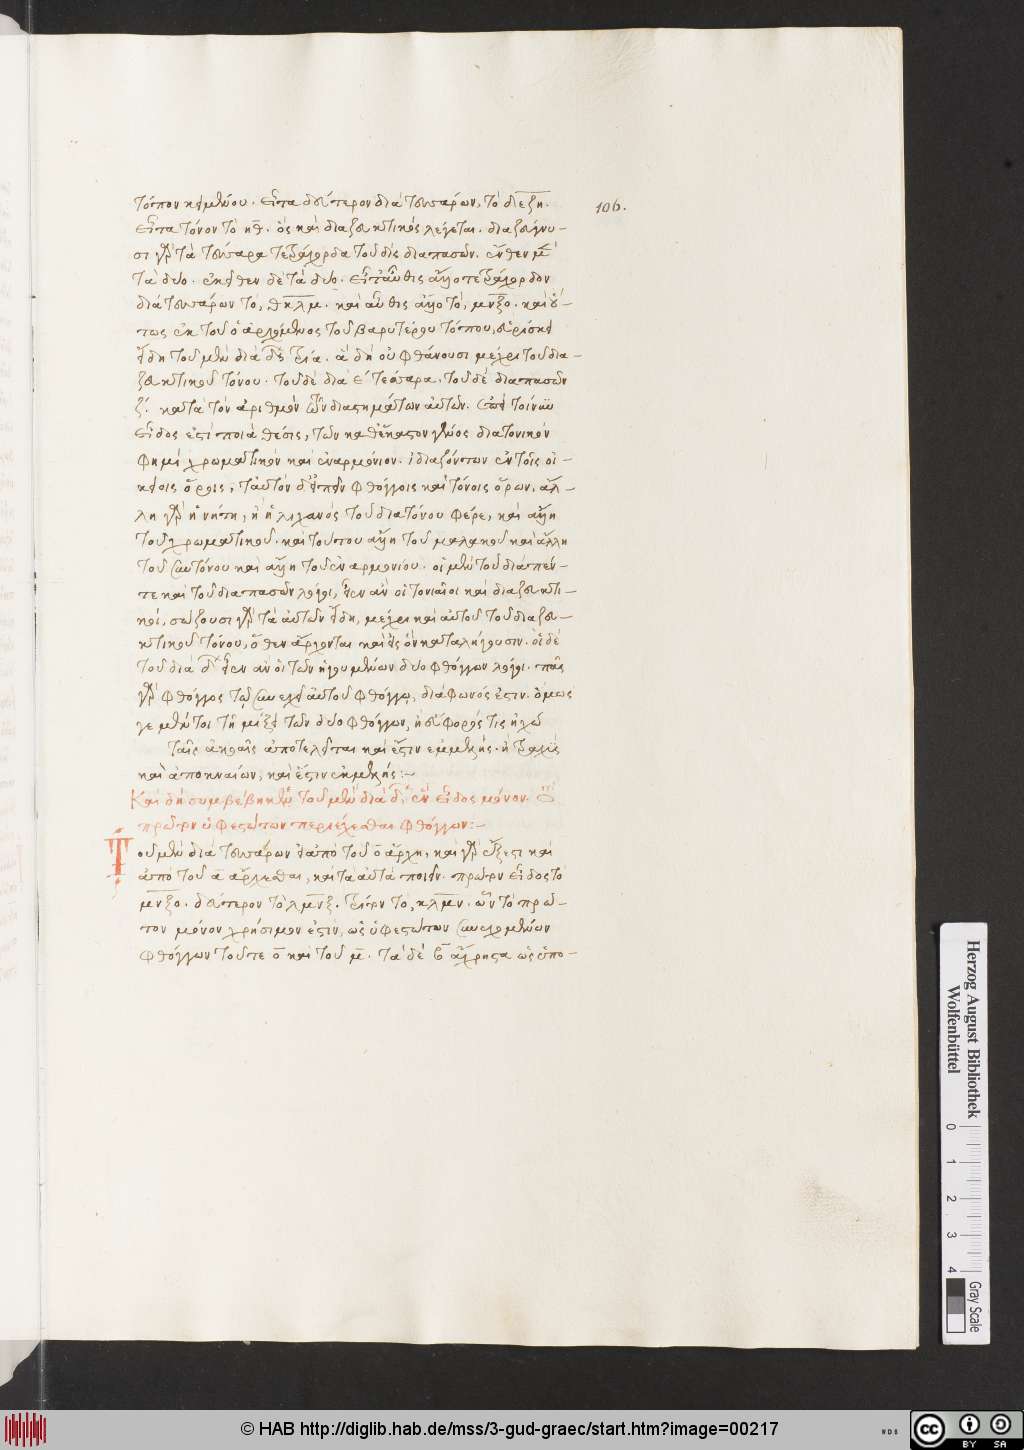 τόπον κειμένου. εἶτα δεύτερον διὰ τεσσάρων, τὸ διεζη.
εἶτα τόνον τὸ ηθ. ὃς καὶ διαζευκτικὸς λέγεται. διαζεύγνυ-
σι γὰρ τὰ τέσσαρα τετράχορδα τοῦ δὶς διαπασῶν. ἔνθεν μὲν
τὰ δύο. ἐκεῖθεν δὲ τὰ δύο. εἶτ' αὖθις ἄλλο τετράχορδον
διὰ τεσσάρων τὸ, θκλμ. καὶ αὖθις ἄλλο τὸ, μνξο. καὶ οὕ-
τως ἐκ τοῦ ο ἀρχόμενος τοῦ βαρυτέρου τόπου, εὑρίσκει
εἴδη τοῦ μὲν διὰ δ τρία. ἃ δὴ οὐ φθάνουσι μέχρι τοῦ δια-
ζευκτικοῦ τόνου. τοῦ δὲ διὰ ε τέσσαρα. τοῦ δὲ διαπασῶν
ζ. κατὰ τὸν ἀριθμὸν τῶν διαστημάτων αὐτῶν. ἐπεὶ τοίνυν
εἶδός ἐστι ποιὰ θέσις, τῶν καθ' ἕκαστον γένος διατονικόν
φημὶ χρωματικὸν καὶ ἐναρμόνιον. ἰδιαζόντων ἐν τοῖς οἰ-
κείοις ὅροις, ταὐτὸν δ' εἰπεῖν φθόγγοις καὶ τόνοις ὅρων. ἄλ-
λη γὰρ ἡ νήτη, ἢ ἡ λιχανὸς τοῦ διατόνου φέρε, καὶ ἄλλη
τοῦ χρωματικοῦ. καὶ τούτου ἄλλη τοῦ μαλακοῦ καὶ ἄλλη
τοῦ συντόνου καὶ ἄλλη τοῦ ἐναρμονίου. οἱ μὲν τοῦ διὰ πέν-
τε καὶ τοῦ διαπασῶν λόγοι, εἶεν ἂν οἱ τονιαῖοι καὶ διαζευκτι-
κοί, σώζουσι γὰρ τὰ αὐτῶν εἴδη, μέχρι καὶ αὐτοῦ τοῦ διαζευ-
κτικοῦ τόνου, ὅθεν ἄρχονται καὶ εἰς ὃν καταλήγουσιν. οἱ δὲ
τοῦ διὰ δ εἶεν ἂν οἱ τῶν ἡγουμένων δύο φθόγγων λόγοι. πᾶς
γὰρ φθόγγος τῷ συνεχεῖ αὐτοῦ φθόγγῳ, διάφωνός ἐστιν. ὅμως
γε μέντοι τῇ μίξει τῶν δύο φθόγγων, ἢ εὔφορός τις ἠχὼ
ταῖς ἀκοαῖς ἀποτελεῖται καὶ ἔστιν ἐμμελής. ἢ τραχεῖα
καὶ ἀποκναίων, καὶ ἔστιν ἐκμελής:-
Καὶ δὴ συμβέβηκεν τοῦ μὲν διὰ δ ἓν εἶδος μόνον.
πρῶτον ὑφεστώτων περιέχεσθαι φθόγγων:-
Τοῦ μὲν διὰ τεσσάρων εἰ ἀπὸ τοῦ ο ἄρχῃ, καὶ γὰρ ἔξεστι καὶ
ἀπὸ τοῦ α ἄρχεσθαι, καὶ τὰ αὐτὰ ποιεῖν. πρῶτον εἶδος τὸ
μνξο. δεύτερον τὸ λμνξ. τρίτον τὸ, κλμν. ὧν τὸ πρῶ-
τον μόνον χρήσιμόν ἐστιν, ὡς ὑφεστώτων συνεχομένων
φθόγγων τοῦ τε ο καὶ τοῦ μ. τὰ δὲ β ἄχρηστα ὡς ὑπο-
106.
Herzog August Bibliothek
Wolfenbüttel
0 1 2 3 4
Gray Scale
© HAB http://diglib.hab.de/mss/3-gud-graec/start.htm?image=00217
WDB
cc BY SA